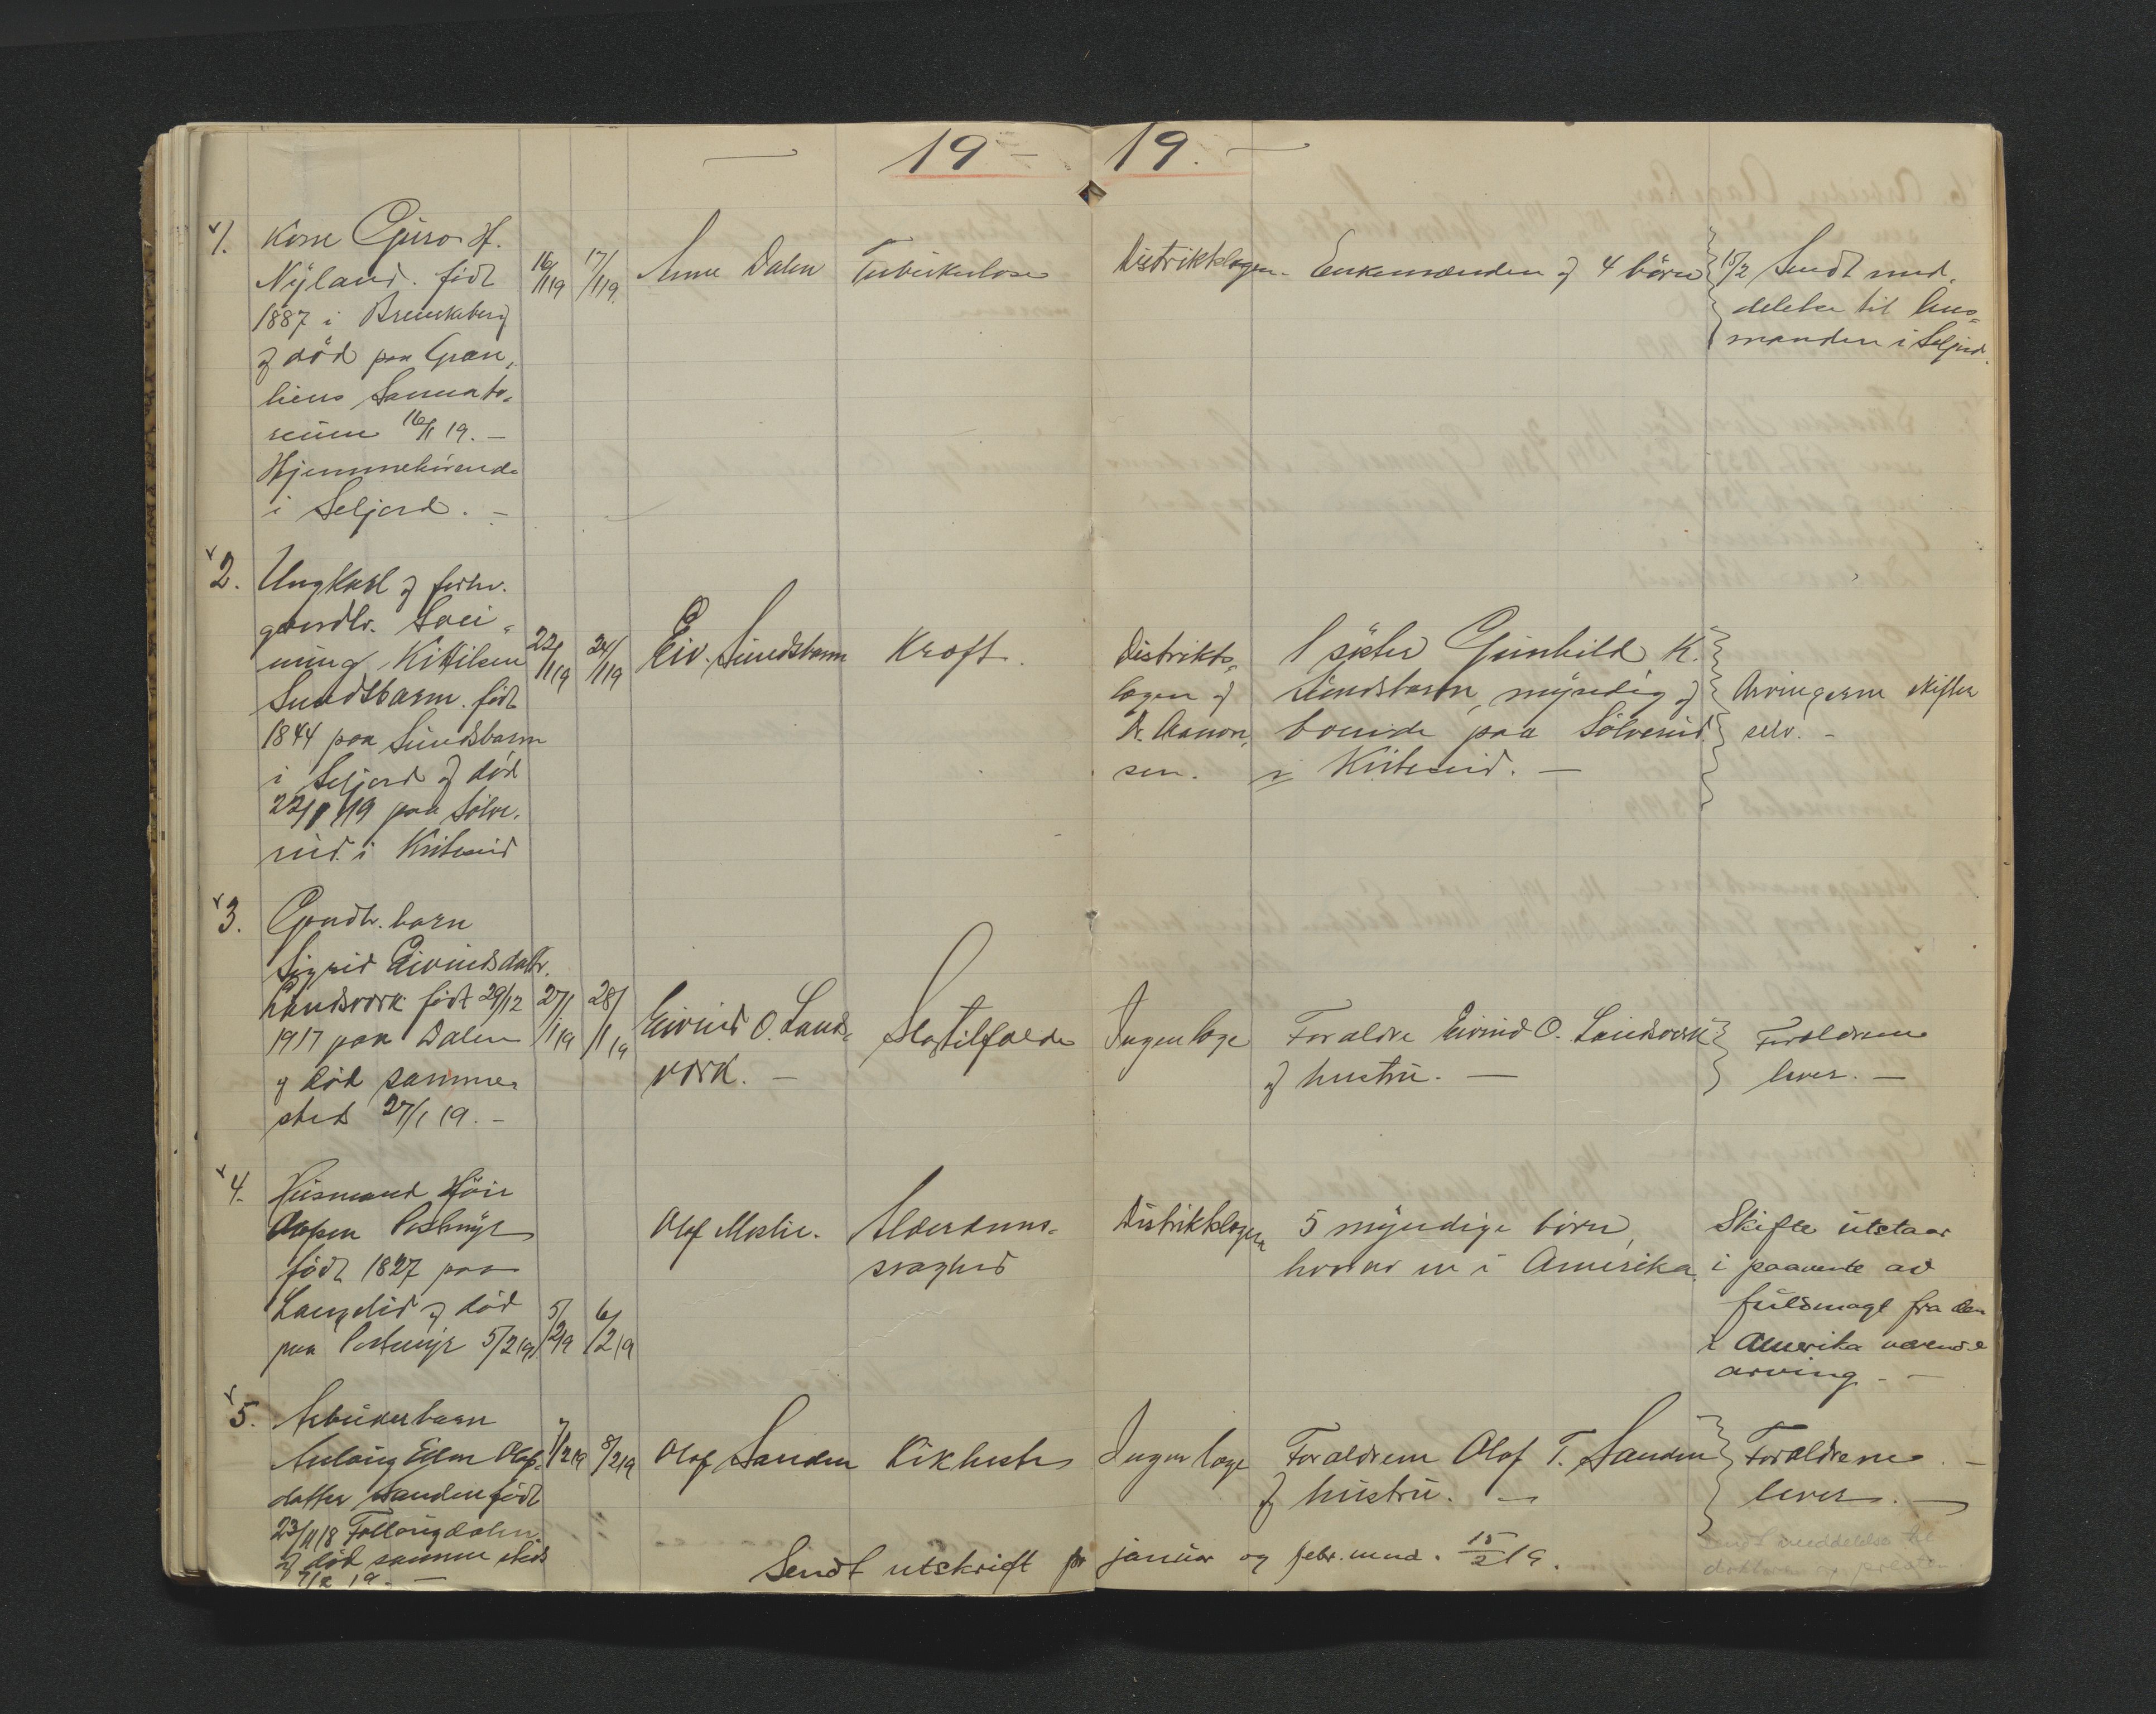 19 - 19. -
1. Kone Guro H.
Nyland. født
1887 i Brunkeberg
og död paa Gran,
liens Sannato,
rium 16/1 19. -
Hjemmehörende
i Seljord. -
16/1 19
17/1 19.
Anne Dalen
Tuberkulose
Distriktslægen.
Enkemanden og 4 börn
15/2 Sendt med,
delelse til lens,
manden i Seljord.
2. Ungkarl og forhv.
gaardbr. Svei,
nung Kittilsen
Sundsbarm. födt
1844 paa Sundsbarm
i Seljord og död
22/1 19 paa Sölve,
rud. i Kviteseid
22/1 19
24/1 19
Eiv. Sundsbarm
Kræft.
Distrikts,
lægen og
Dr. Aanon,
sen.
1 söster Gunhild K.
Sundsbarm, myndig og
boende paa Sölverud
i Kviteseid. -
Arvingerne skifter
selv. -
3. Gaardbr. barn
Sigrid Eivindsdattr.
Landsverk född 29/12
1917 paa Dalen
og död samme,
sted 27/1 19. -
27/1 19
28/1 19
Eivind O. Lands,
verk. -
Slagtilfælde
Ingen læge
Forældre Eivind O. Landsverk
og hustru. -
Forældrene
lever. -
4. Husmand Höie
Olavsen Postmyr
födt 1827 paa
Langelid og död
paa Postmyr 5/2 19.
5/2 19
6/2 19
Olaf Moslie.
Alderdoms,
svaghed
Distriktslægen
5 myndige börn,
hvorav en i Amerika.
Skifte utstaar
i paavente av
fuldmagt fra den
i Amerika værende
arving. -
5. Arbeiderbarn
Aslaug Ellen Olafs,
datter Sanden födt
23/11 18 Tollougdalen.
og död samme sted
7/2 19. -
7/2 19
8/2 19
Olaf Sanden
Kikhoste
Ingen læge
Forældrene Olaf T. Sanden
og hustru. -
Forældrene
lever. -
Sendt utskrift for januar og febr. mnd. 15/2 19.
Sendt meddelelse til
doktoren og presten